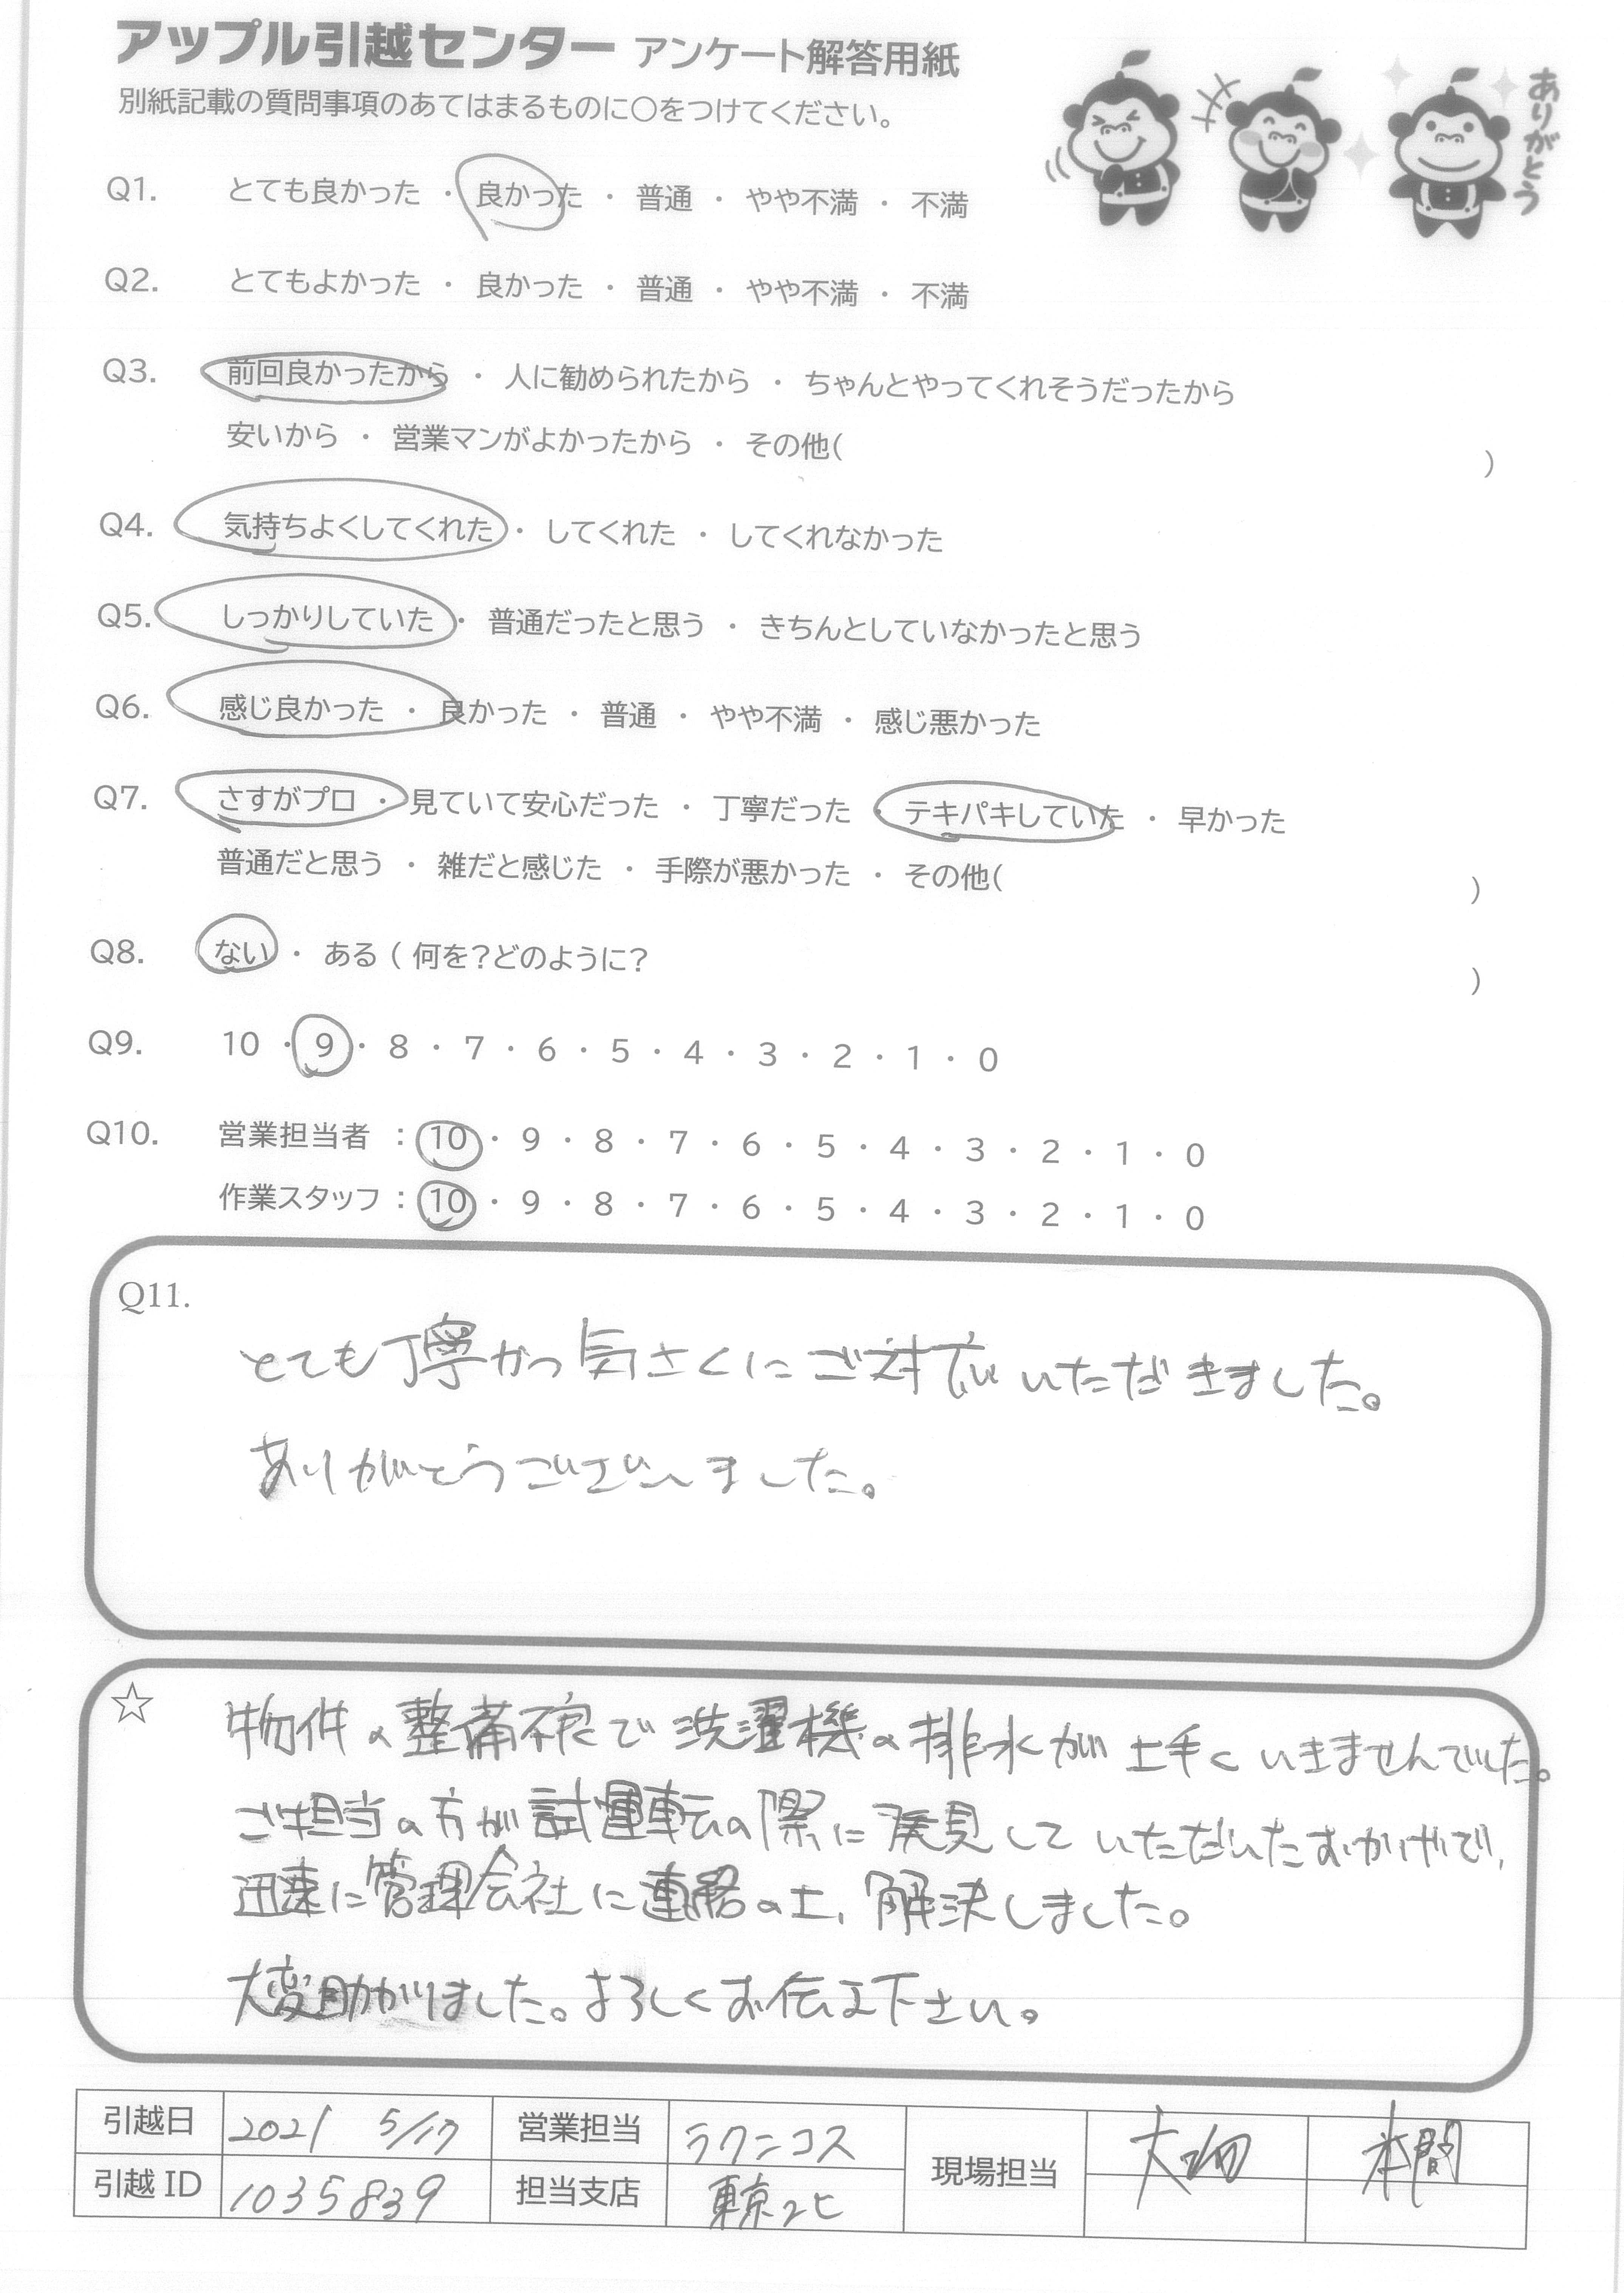 アップル引越センター アンケート解答用紙
別紙記載の質問事項のあてはまるものに〇をつけてください。
ありがとう
Q1. とても良かった ・ 良かった ・ 普通 ・ やや不満 ・ 不満
Q2. とてもよかった ・ 良かった ・ 普通 ・ やや不満 ・ 不満
Q3. 前回良かったから ・ 人に勧められたから ・ ちゃんとやってくれそうだったから
安いから ・ 営業マンがよかったから ・ その他( )
Q4. 気持ちよくしてくれた ・ してくれた ・ してくれなかった
Q5. しっかりしていた ・ 普通だったと思う ・ きちんとしていなかったと思う
Q6. 感じ良かった ・ 良かった ・ 普通 ・ やや不満 ・ 感じ悪かった
Q7. さすがプロ ・ 見ていて安心だった ・ 丁寧だった ・ テキパキしていた ・ 早かった
普通だと思う ・ 雑だと感じた ・ 手際が悪かった ・ その他( )
Q8. ない ・ ある ( 何を?どのように? )
Q9. 10 ・ 9 ・ 8 ・ 7 ・ 6 ・ 5 ・ 4 ・ 3 ・ 2 ・ 1 ・ 0
Q10. 営業担当者 : 10 ・ 9 ・ 8 ・ 7 ・ 6 ・ 5 ・ 4 ・ 3 ・ 2 ・ 1 ・ 0
作業スタッフ : 10 ・ 9 ・ 8 ・ 7 ・ 6 ・ 5 ・ 4 ・ 3 ・ 2 ・ 1 ・ 0
Q11.
とても丁寧かつ気さくにご対応いただきました。
ありがとうございました。
☆ 物件の整備不良で洗濯機の排水が上手くいきませんでした。
ご担当の方が試運転の際に発見していただいたおかげで、
迅速に管理会社に連絡の上、解決しました。
大変助かりました。よろしくお伝え下さい。
引越日 2021 5/17 営業担当 ラクニコス 現場担当 本間
引越 ID 1035839 担当支店 東京